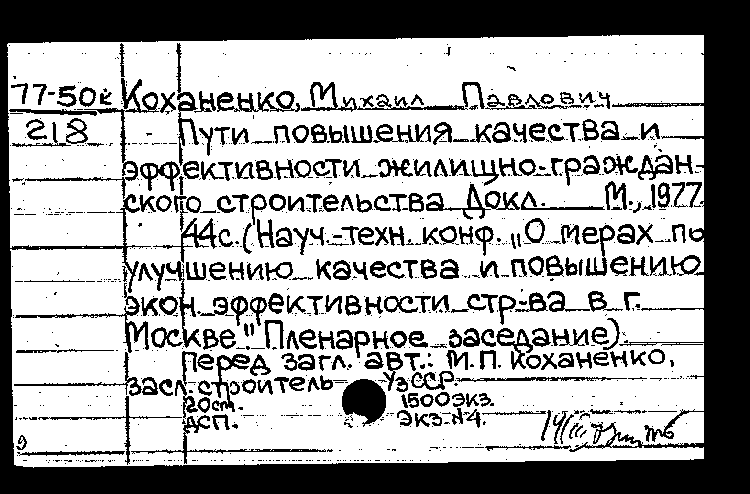 77-50к Коханенко, Михаил Павлович
218 Пути повышения качества и
эффективности жилищно-граждан-
ского строительства Докл. М., 1977.
44с. (Науч.-техн. конф. „О мерах по
улучшению качества и повышению
экон. эффективности стр-ва в г.
Москве". Пленарное заседание).
Перед загл. авт.: М.П. Коханенко,
засл. строитель УзССР.
20см. 1500экз.
ДСП. Экз. №4.
9